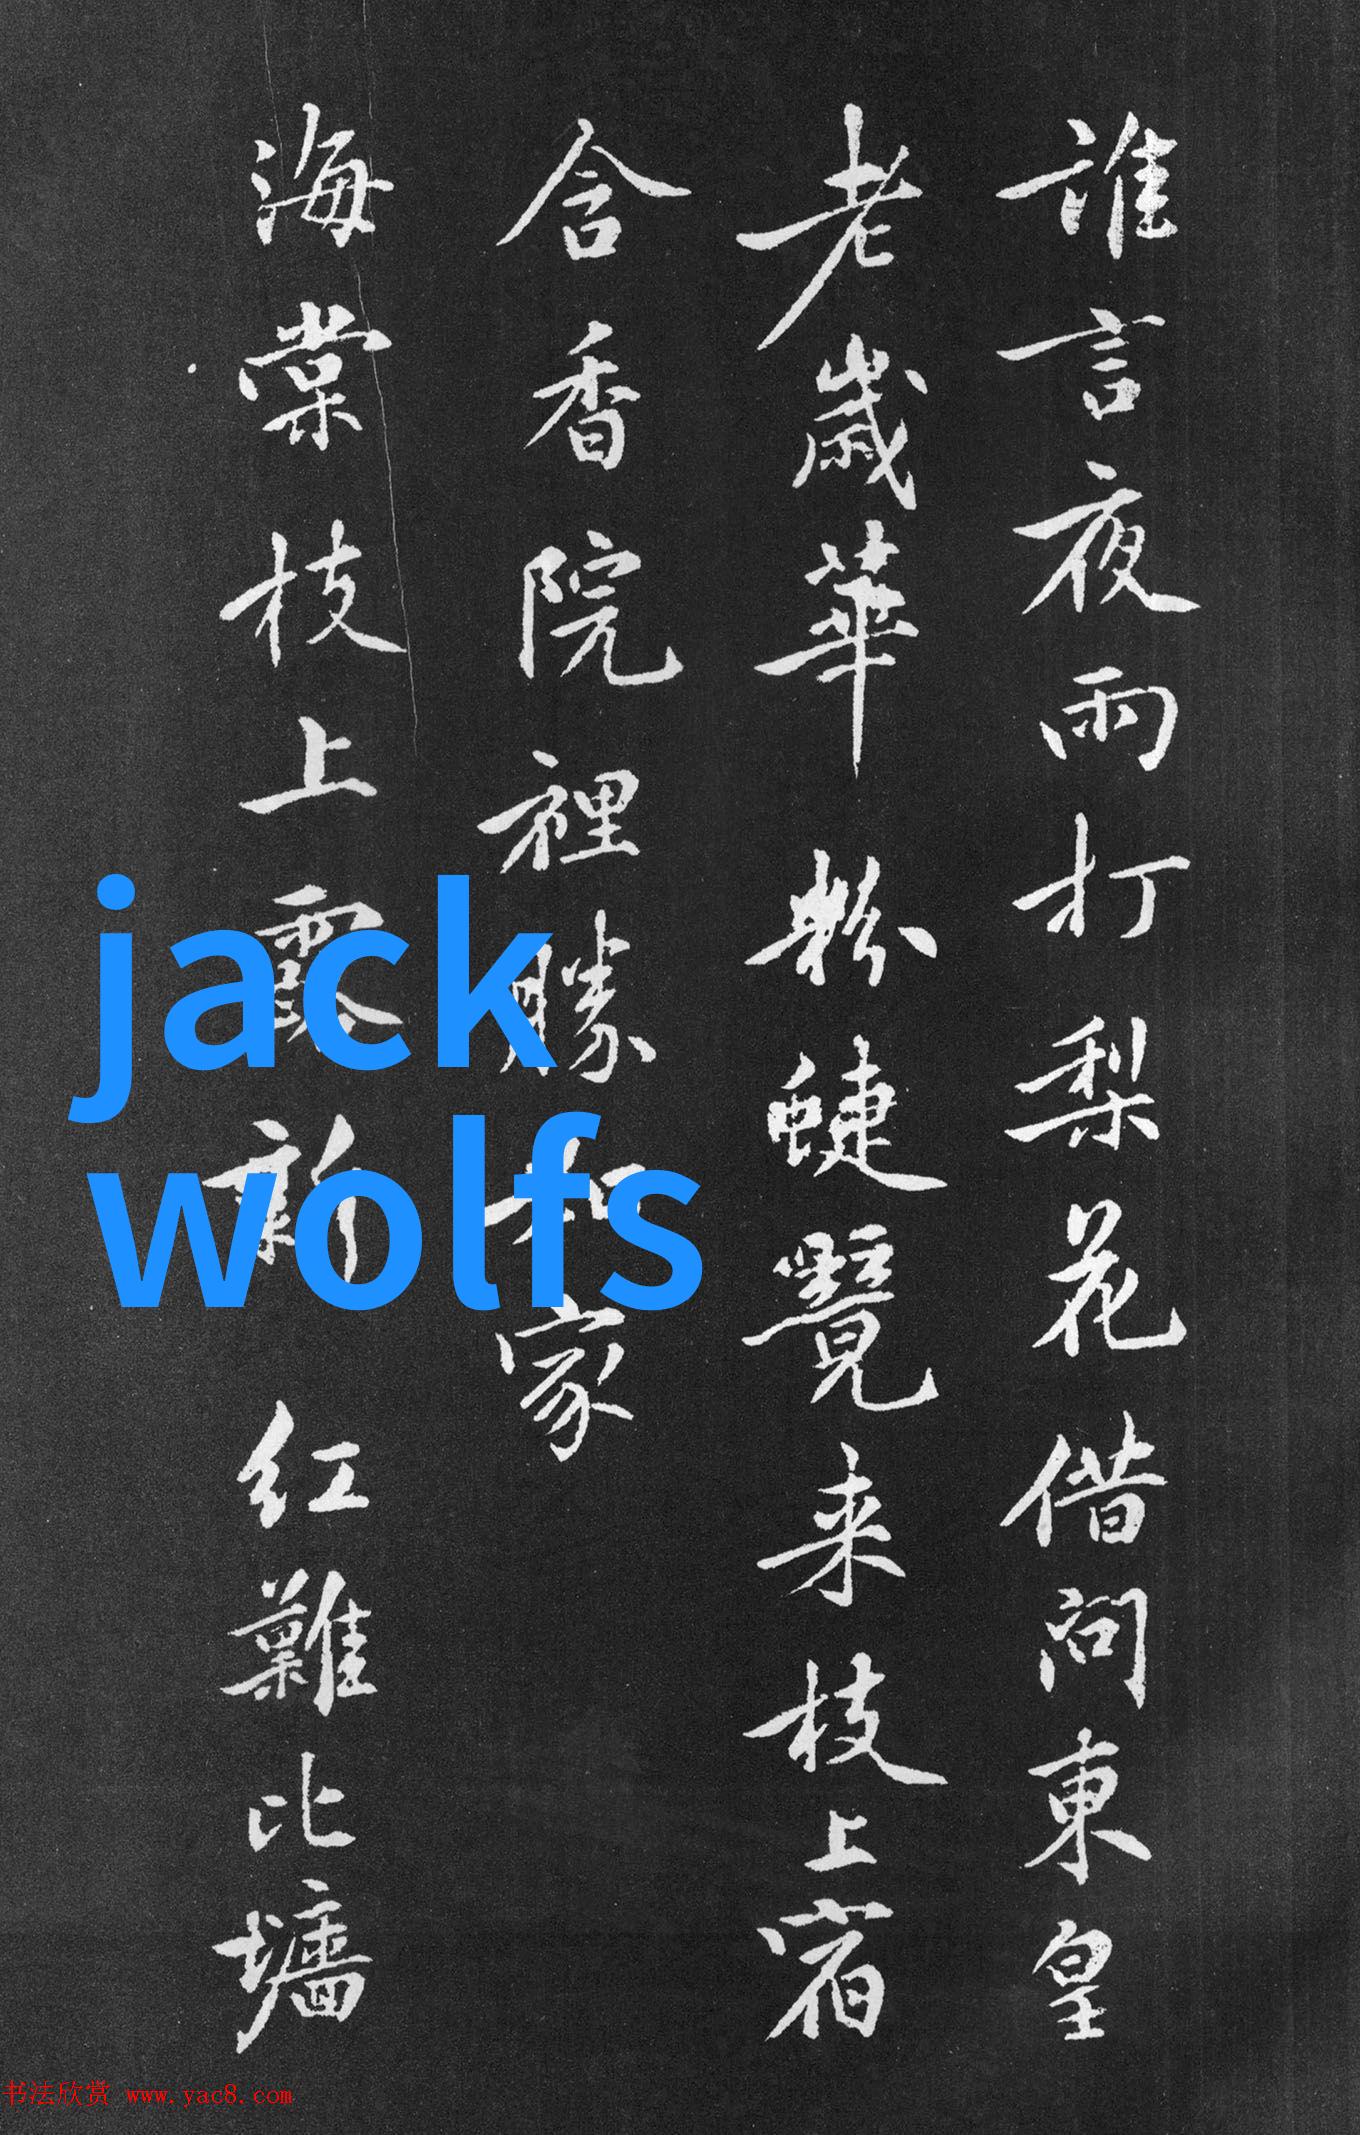 誰言夜雨打梨花借問東皇
老歲華粉蜨覽来枝上宿
含香院裡勝家
海棠枝上露新红難比墻
jack
wolfs
书法欣赏 www.yac8.com